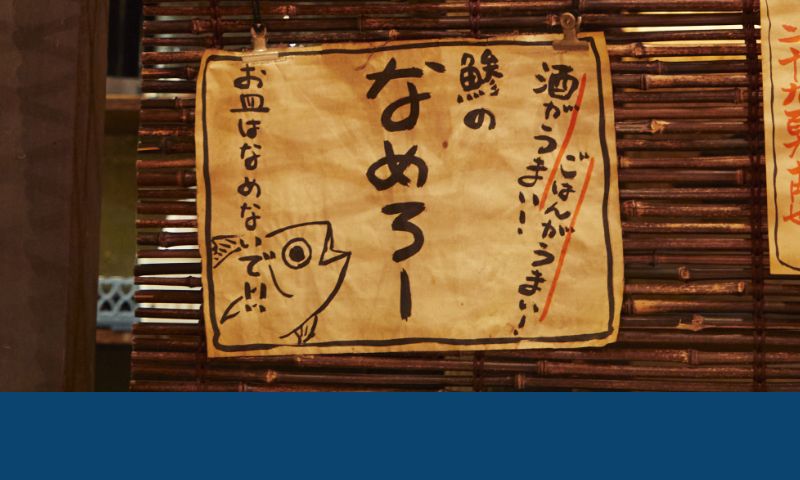 酒がうまい!
ごはんがうまい!
鯵の
なめろー
お皿はなめないで!!